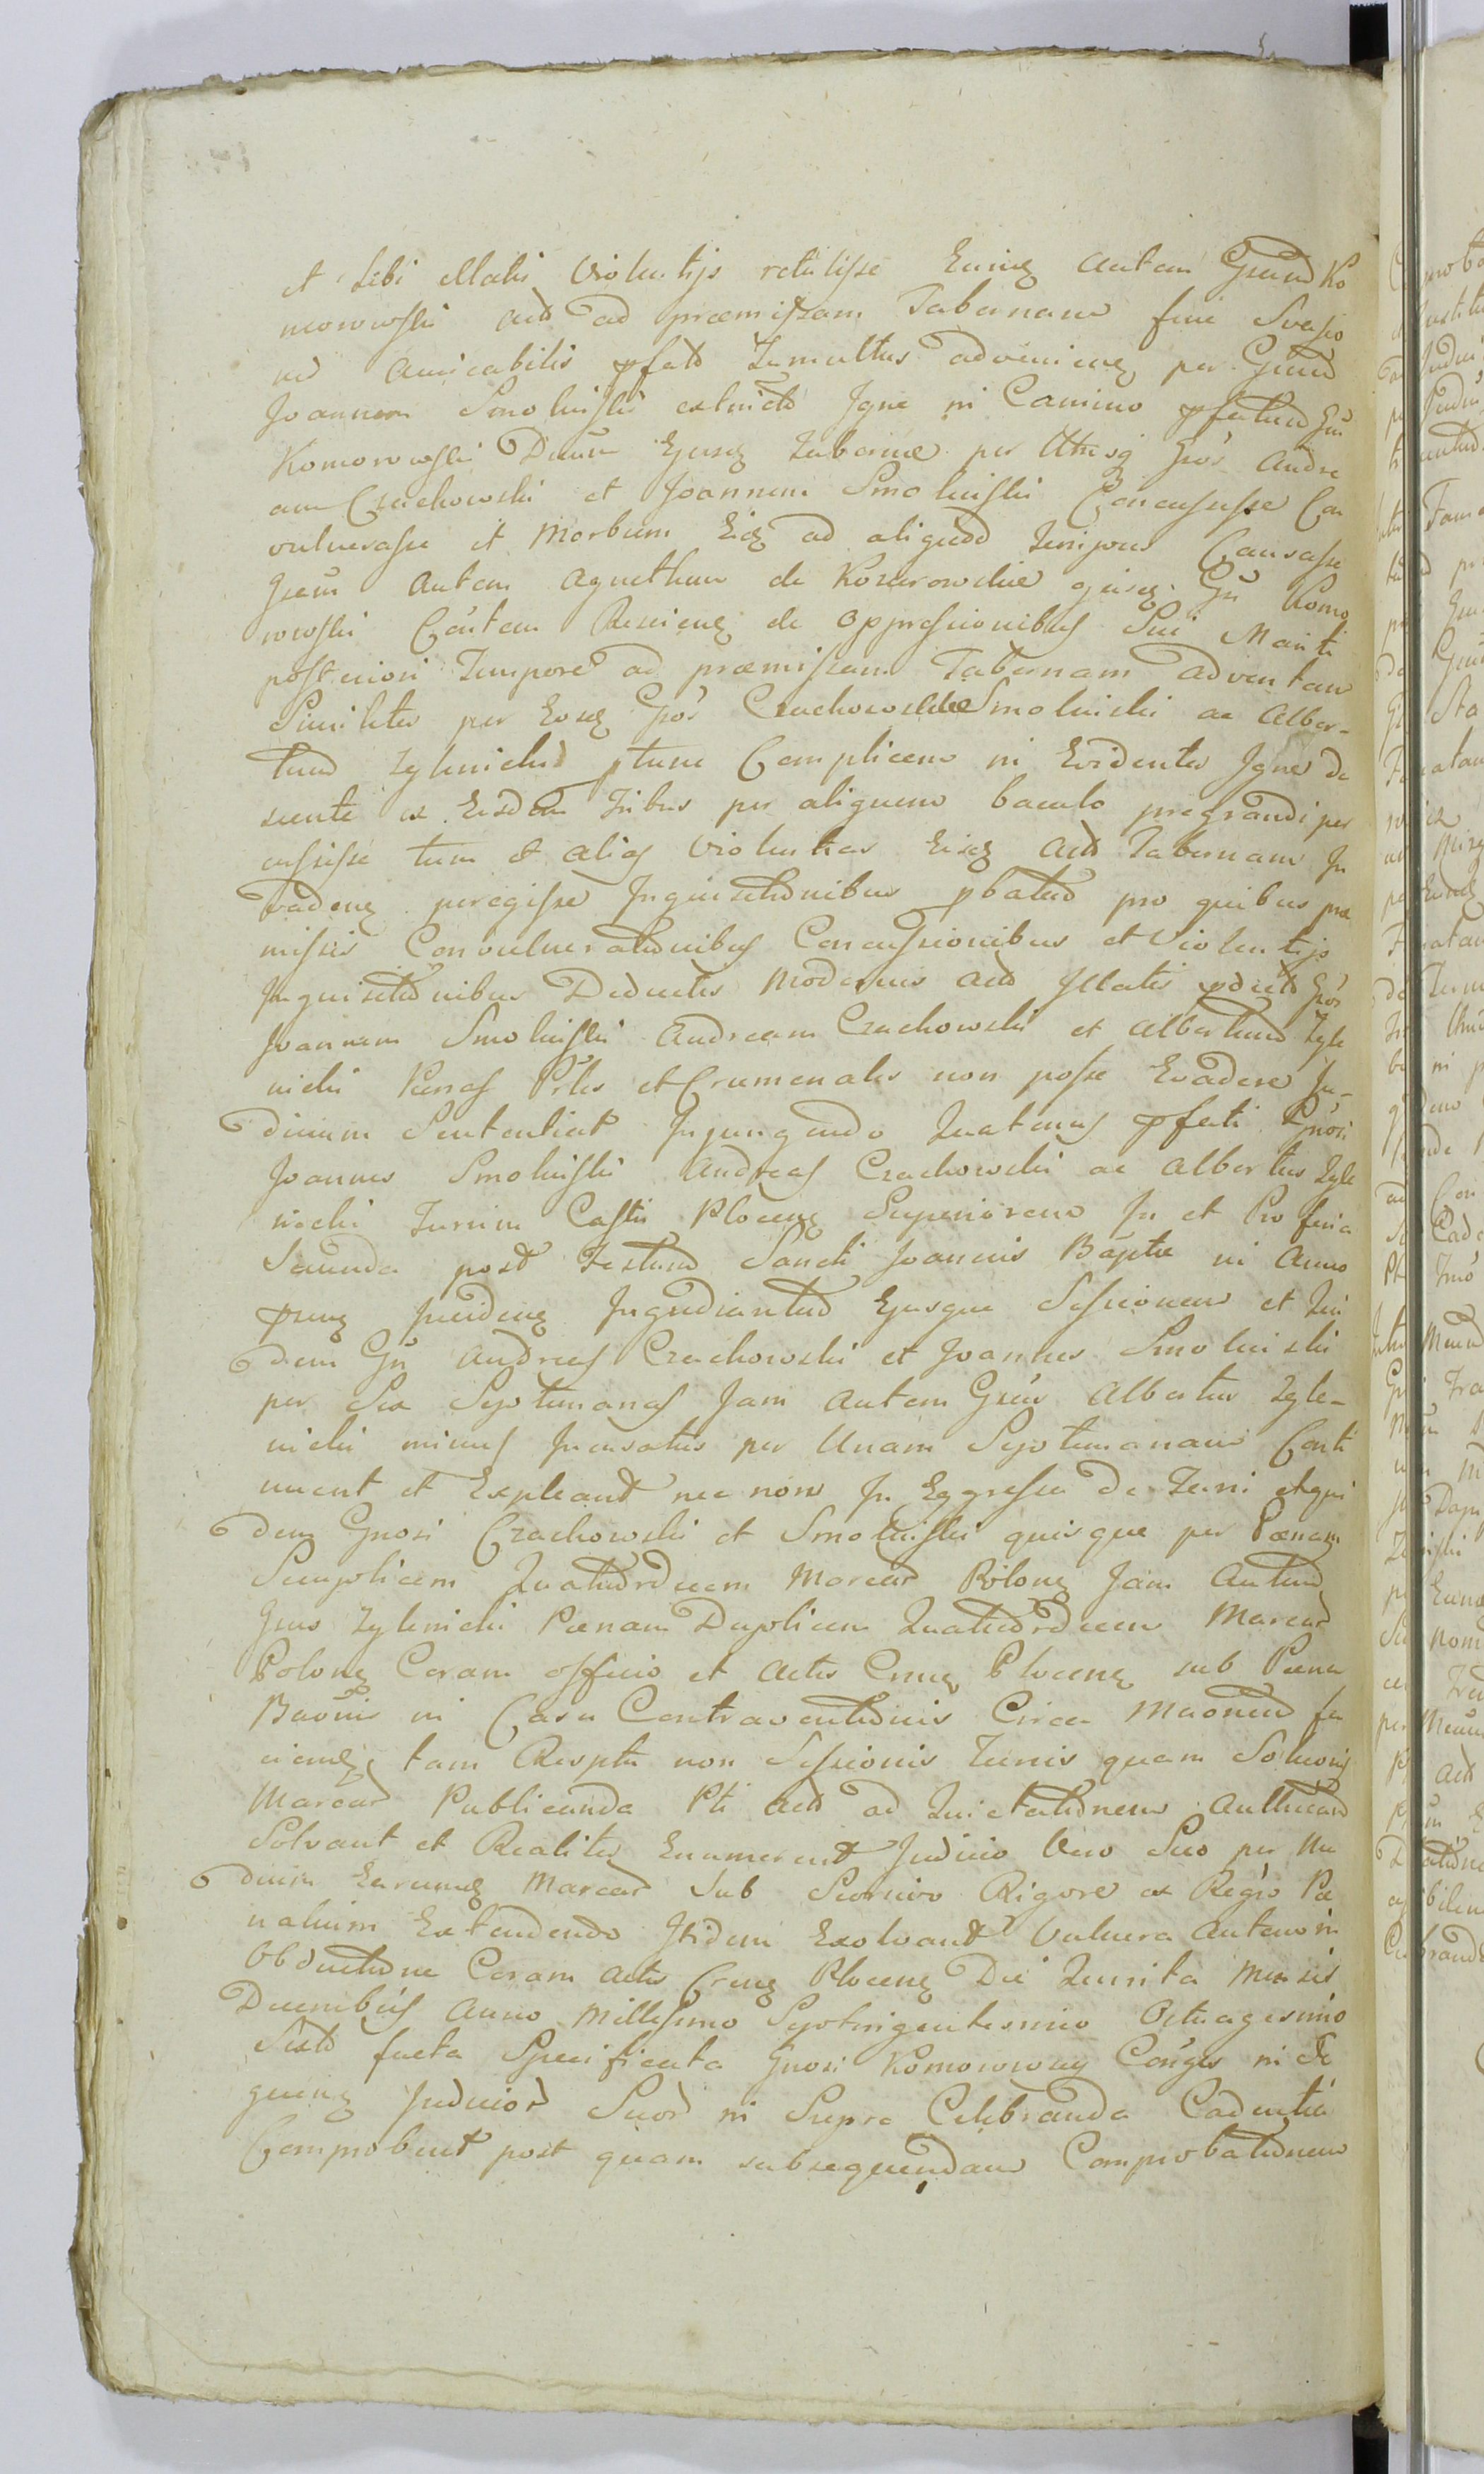 et Sibi illatis violentijs retulisse Eunq autem Gsum Ko
morowski act ad præmissam Tabernam fine Svasio
nis Amicabilis pfati Tumultus advenienq per Gsum
Joannem Smolinski extincto Igne in Camino pfatum Gsu
Komorowski Dnum Ejusq Tabernæ per Utrosq Gsos Andre
am Czachowski et Joannem Smolinski Concussisse Con
vulnerasse et Morbum Eidq ad aliquod Tempus Causasse
Gsam autem Agnetham de Kozarowskie ejusq Gsi Komo
rowski Cöutem Renienq de oppressionibus Sui Mariti
posteriori Tempore ad præmissam Tabernam adventam
Similiter per Eosq Gsos Czachowski Smolinski ac Alber-
tum Zglinicki ptunc Complicem in Evidenter Igne de
sente ex Eisdem Tribus per aliquem baculo pregrandi per
cussisse tum et alias violentias Eisq act Tabernam In
vadenq peregisse Inquisitionibus pbatum pro quibus præ
missis Convulnerationibus Concussionibus et Violentijs
Inquisitionibus Deductis Modernis act Illatis pdictos Gsos
Joannem Smolinski Andream Czachowski et Albertum Zgli
nicki Pœnas Prles et Crumenales non posse Evadere Ju-
dicium Sententiat Injungendo Quatenus pfati Gnosi
Joannes Smolinski Andreas Czachowski ac Albertus Zgli
nicki Turrim Castri Plocenq Superiorem In et Pro feria
Secunda post Festum Sancti Joannis Baptæ in Anno
prnq Incidenq Ingrediantur Ejusque Sessionem et Qui
dem Gsi Andreas Czachowski et Joannes Smolinski
per Sex Septimanas Jam autem Gsus Albertus Zgli-
nicki minus Incusatus per Unam Septimanam Conti
nuent et Expleant nec non In Eggressu De Turri etqui
dem Gnosi Czachowski et Smolinski quisque per Pœnam
Simplicem Quatuordecem Marcar Polonq Jam Autem
Gsus Zglinicki Pœnam Duplicem Quatuordecem Marcar
Polonq Coram officio et Actis Crnq Plocenq sub Pœna
Baonis in Casu Contraventionis Circa Maonem fa
cienq, tam Resptu non Sessionis Turris quam Soluonis
Marcar Publicanda Pti act ad Quietationem Authicam
Solvant et Realiter Enumerent Judicio Vero Suo per Me
dium Earumq Marcar Sub Seorsivo Rigore ex Regro Pœ
nalium Extendendo Itidem Exolvant Vulnera Autem in
Obductione Coram Actis Crenq Plocenq Die Quinta Mensis
Decembris Anno Millesimo Septingentesimo Octuagesimo
Sexto facta Specificata Gnosi Komorowscy Coñges in Se
quenq Judicior Suor in Supra Celebranda Cadentia
Comprobent post quam subsequendam Comprobationem